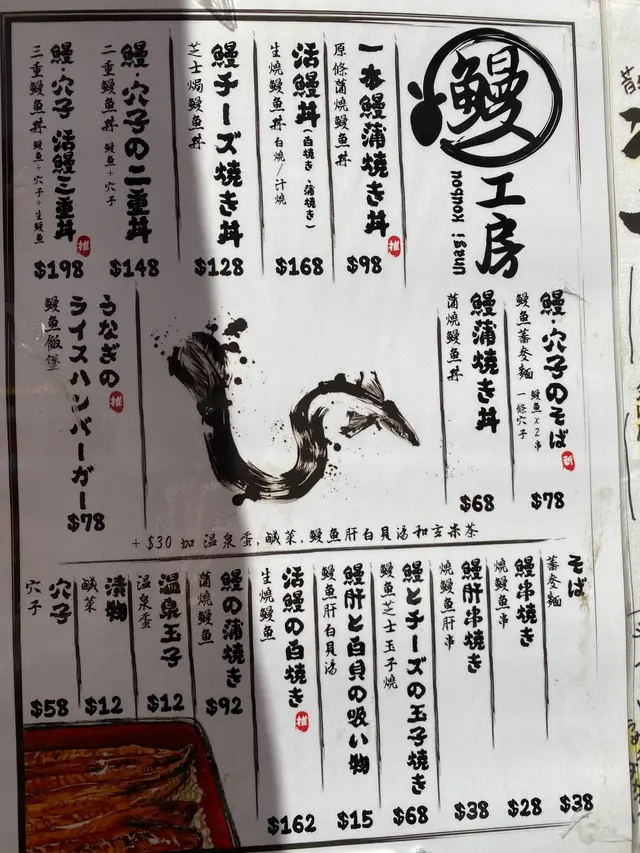 鰻
工房
unagi koubou
一本鰻蒲焼き丼
原條蒲燒鰻魚丼
推
$98
活鰻丼(白焼き/蒲焼き)
生燒鰻魚丼 白燒/汁燒
$168
鰻チーズ焼き丼
芝士焗鰻魚丼
$128
鰻・穴子の二重丼
二重鰻魚丼 鰻魚+穴子
$148
鰻・穴子 活鰻三重丼
三重鰻魚丼 鰻魚+穴子+生鰻魚
推
$198
鰻・穴子のそば
鰻魚蕎麥麵 鰻魚x2串 一條穴子
新
$78
鰻蒲焼き丼
蒲燒鰻魚丼
$68
うなぎの
ライスハンバーガー
鰻魚飯堡
推
$78
+$30 加 温泉蛋,鹹菜,鰻魚肝白貝湯和玄米茶
そば
蕎麥麵
$38
鰻串焼き
燒鰻魚串
$28
鰻肝串焼き
燒鰻魚肝串
$38
鰻とチーズの玉子焼き
鰻魚芝士玉子燒
$68
鰻肝と白貝の吸い物
鰻魚肝白貝湯
$15
活鰻の白焼き
生燒鰻魚
推
$162
鰻の蒲焼き
蒲燒鰻魚
$92
温泉玉子
温泉蛋
$12
漬物
鹹菜
$12
穴子
穴子
$58